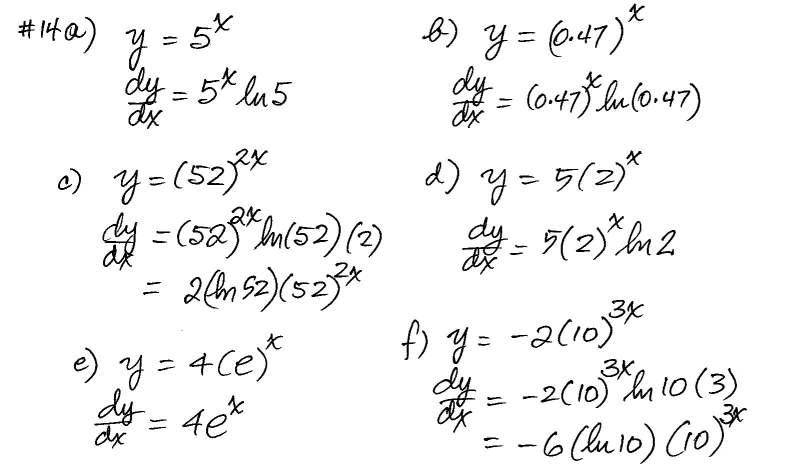 #14a) y = 5^x
dy/dx = 5^x ln 5
b) y = (0.47)^x
dy/dx = (0.47)^x ln(0.47)
c) y = (52)^2x
dy/dx = (52)^2x ln(52)(2)
= 2(ln 52)(52)^2x
d) y = 5(2)^x
dy/dx = 5(2)^x ln 2
e) y = 4(e)^x
dy/dx = 4e^x
f) y = -2(10)^3x
dy/dx = -2(10)^3x ln 10 (3)
= -6(ln 10)(10)^3x